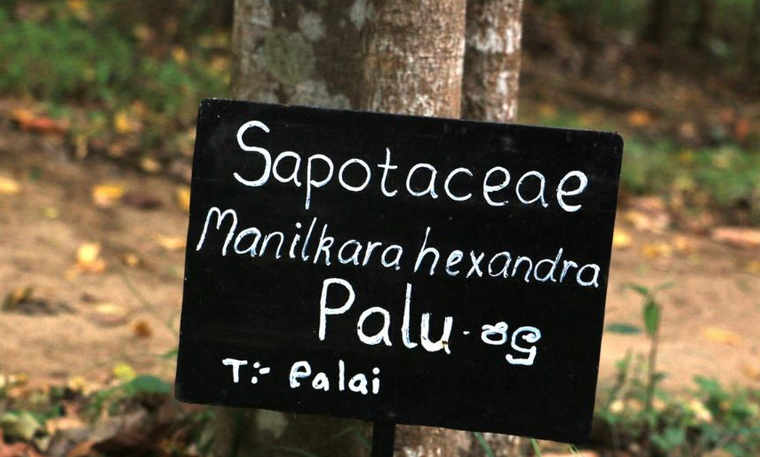 Sapotaceae
Manilkara hexandra
Palu - පලු
T:- Palai